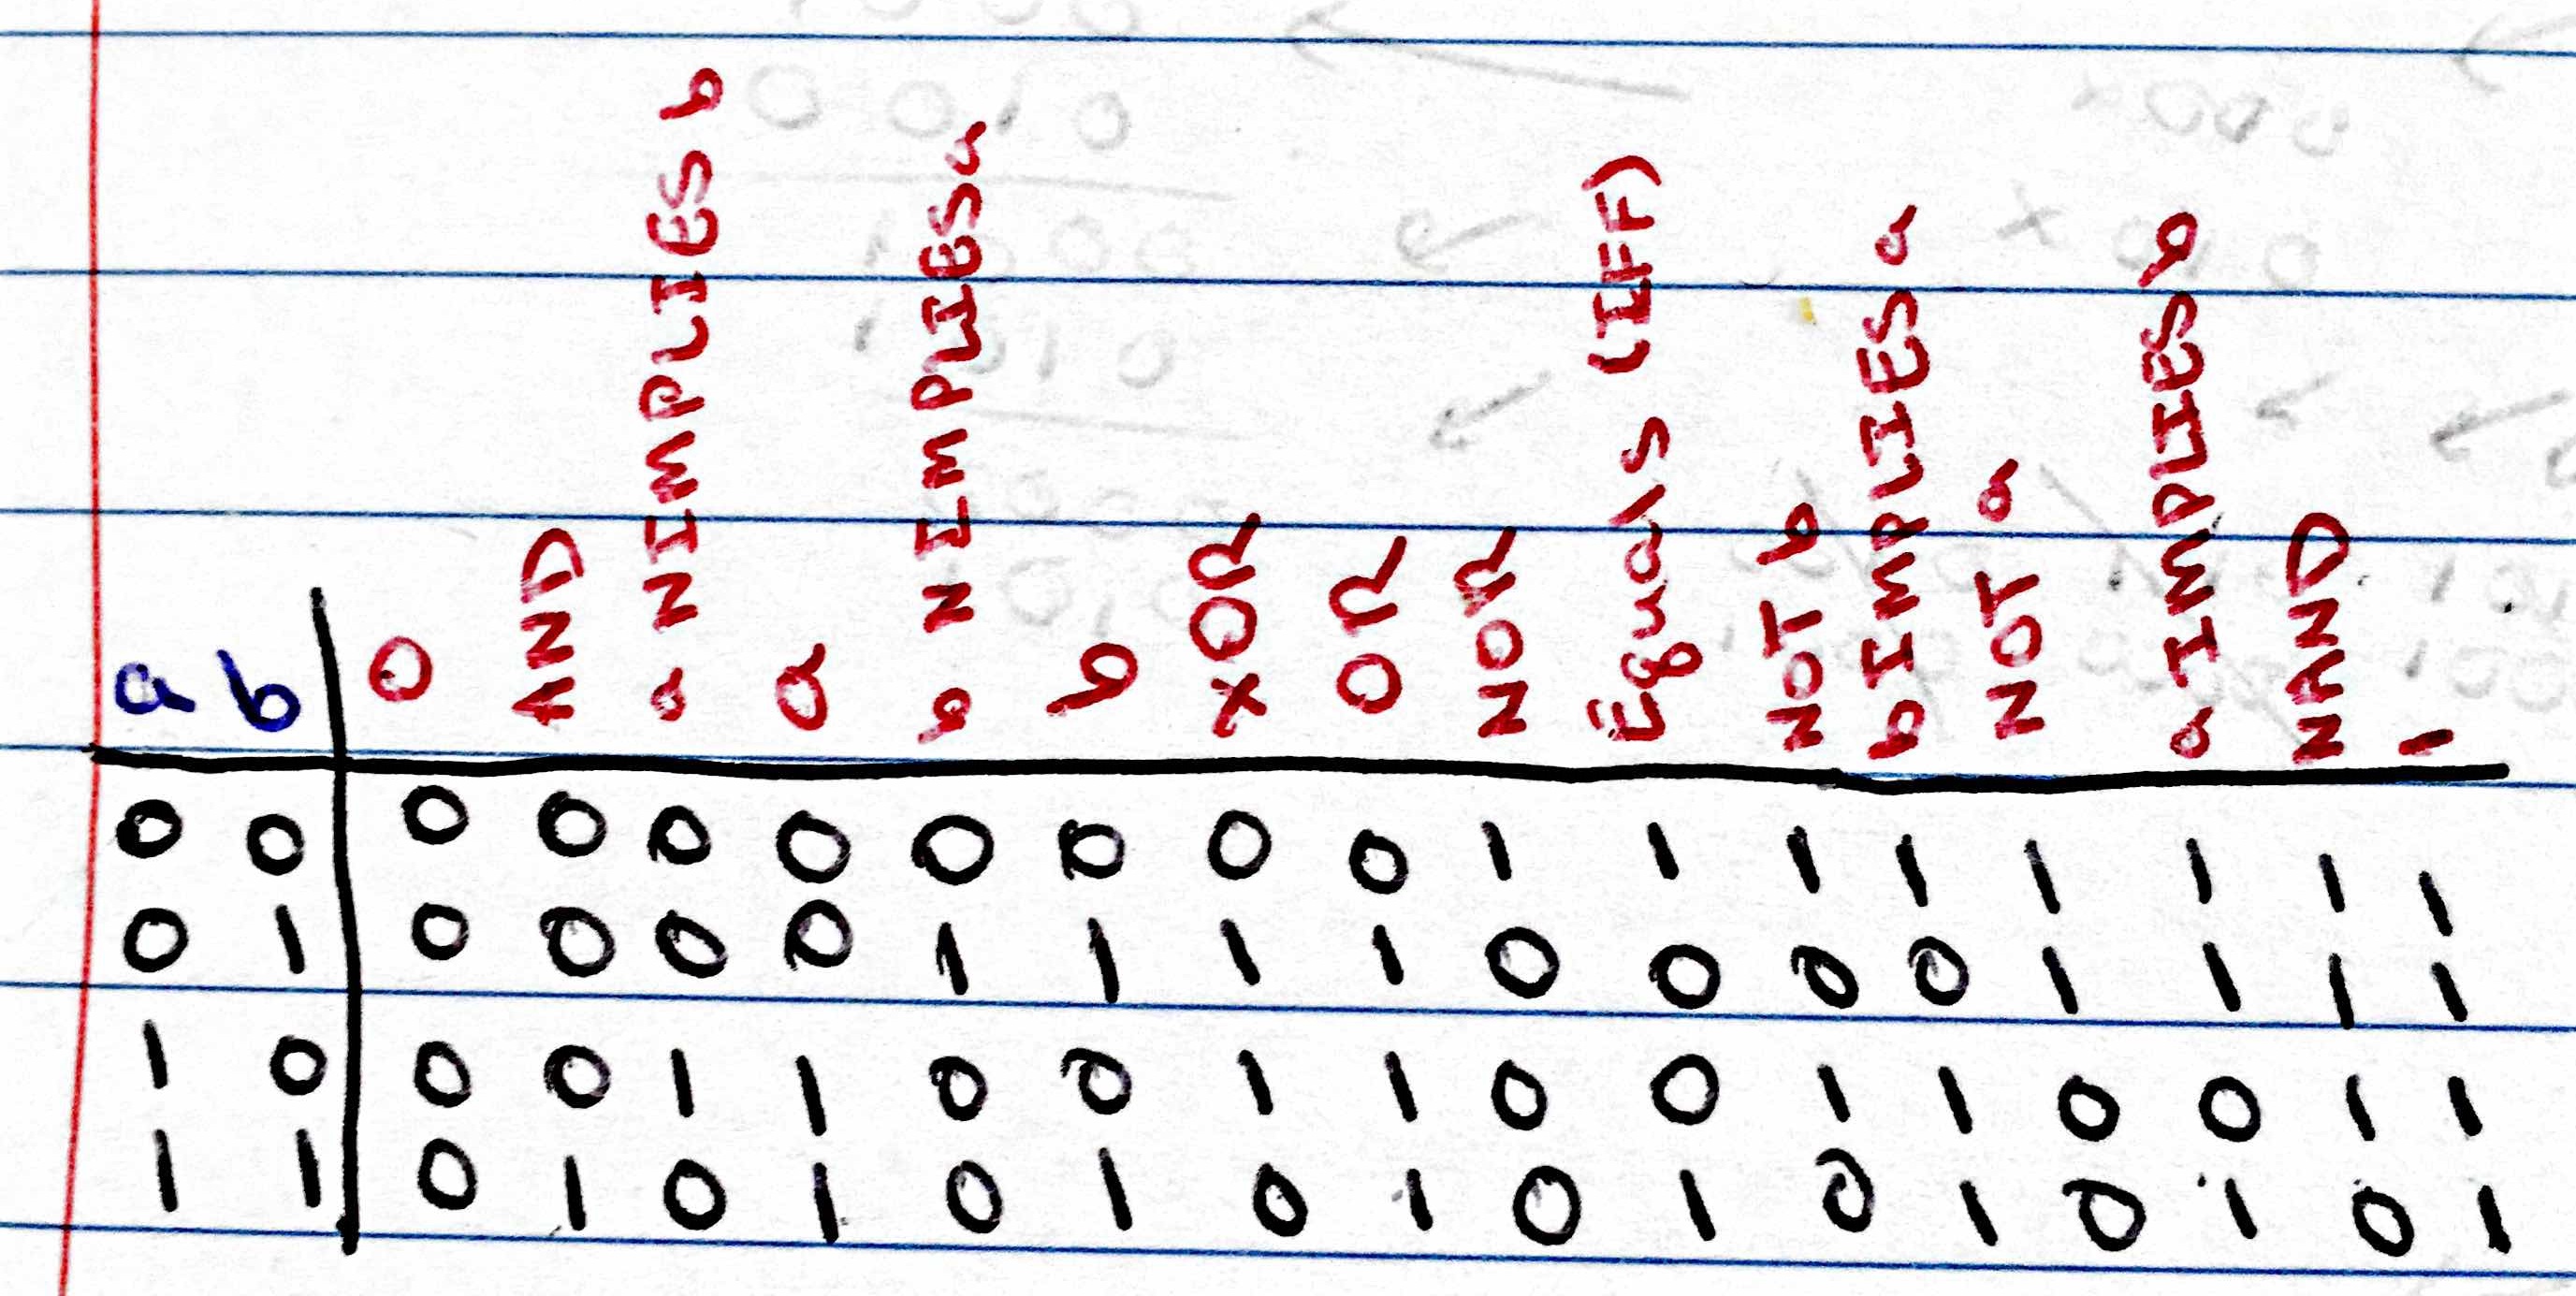 a b 0 AND a NIMPLIES b a b NIMPLIES a b XOR OR NOR Equals (IFF) NOT b b IMPLIES a NOT a a IMPLIES b NAND 1
0 0 0 0 0 0 0 0 0 0 1 1 1 1 1 1 1 1
0 1 0 0 0 0 1 1 1 1 0 0 0 0 1 1 1 1
1 0 0 0 1 1 0 0 1 1 0 0 1 1 0 0 1 1
1 1 0 1 0 1 0 1 0 1 0 1 0 1 0 1 0 1